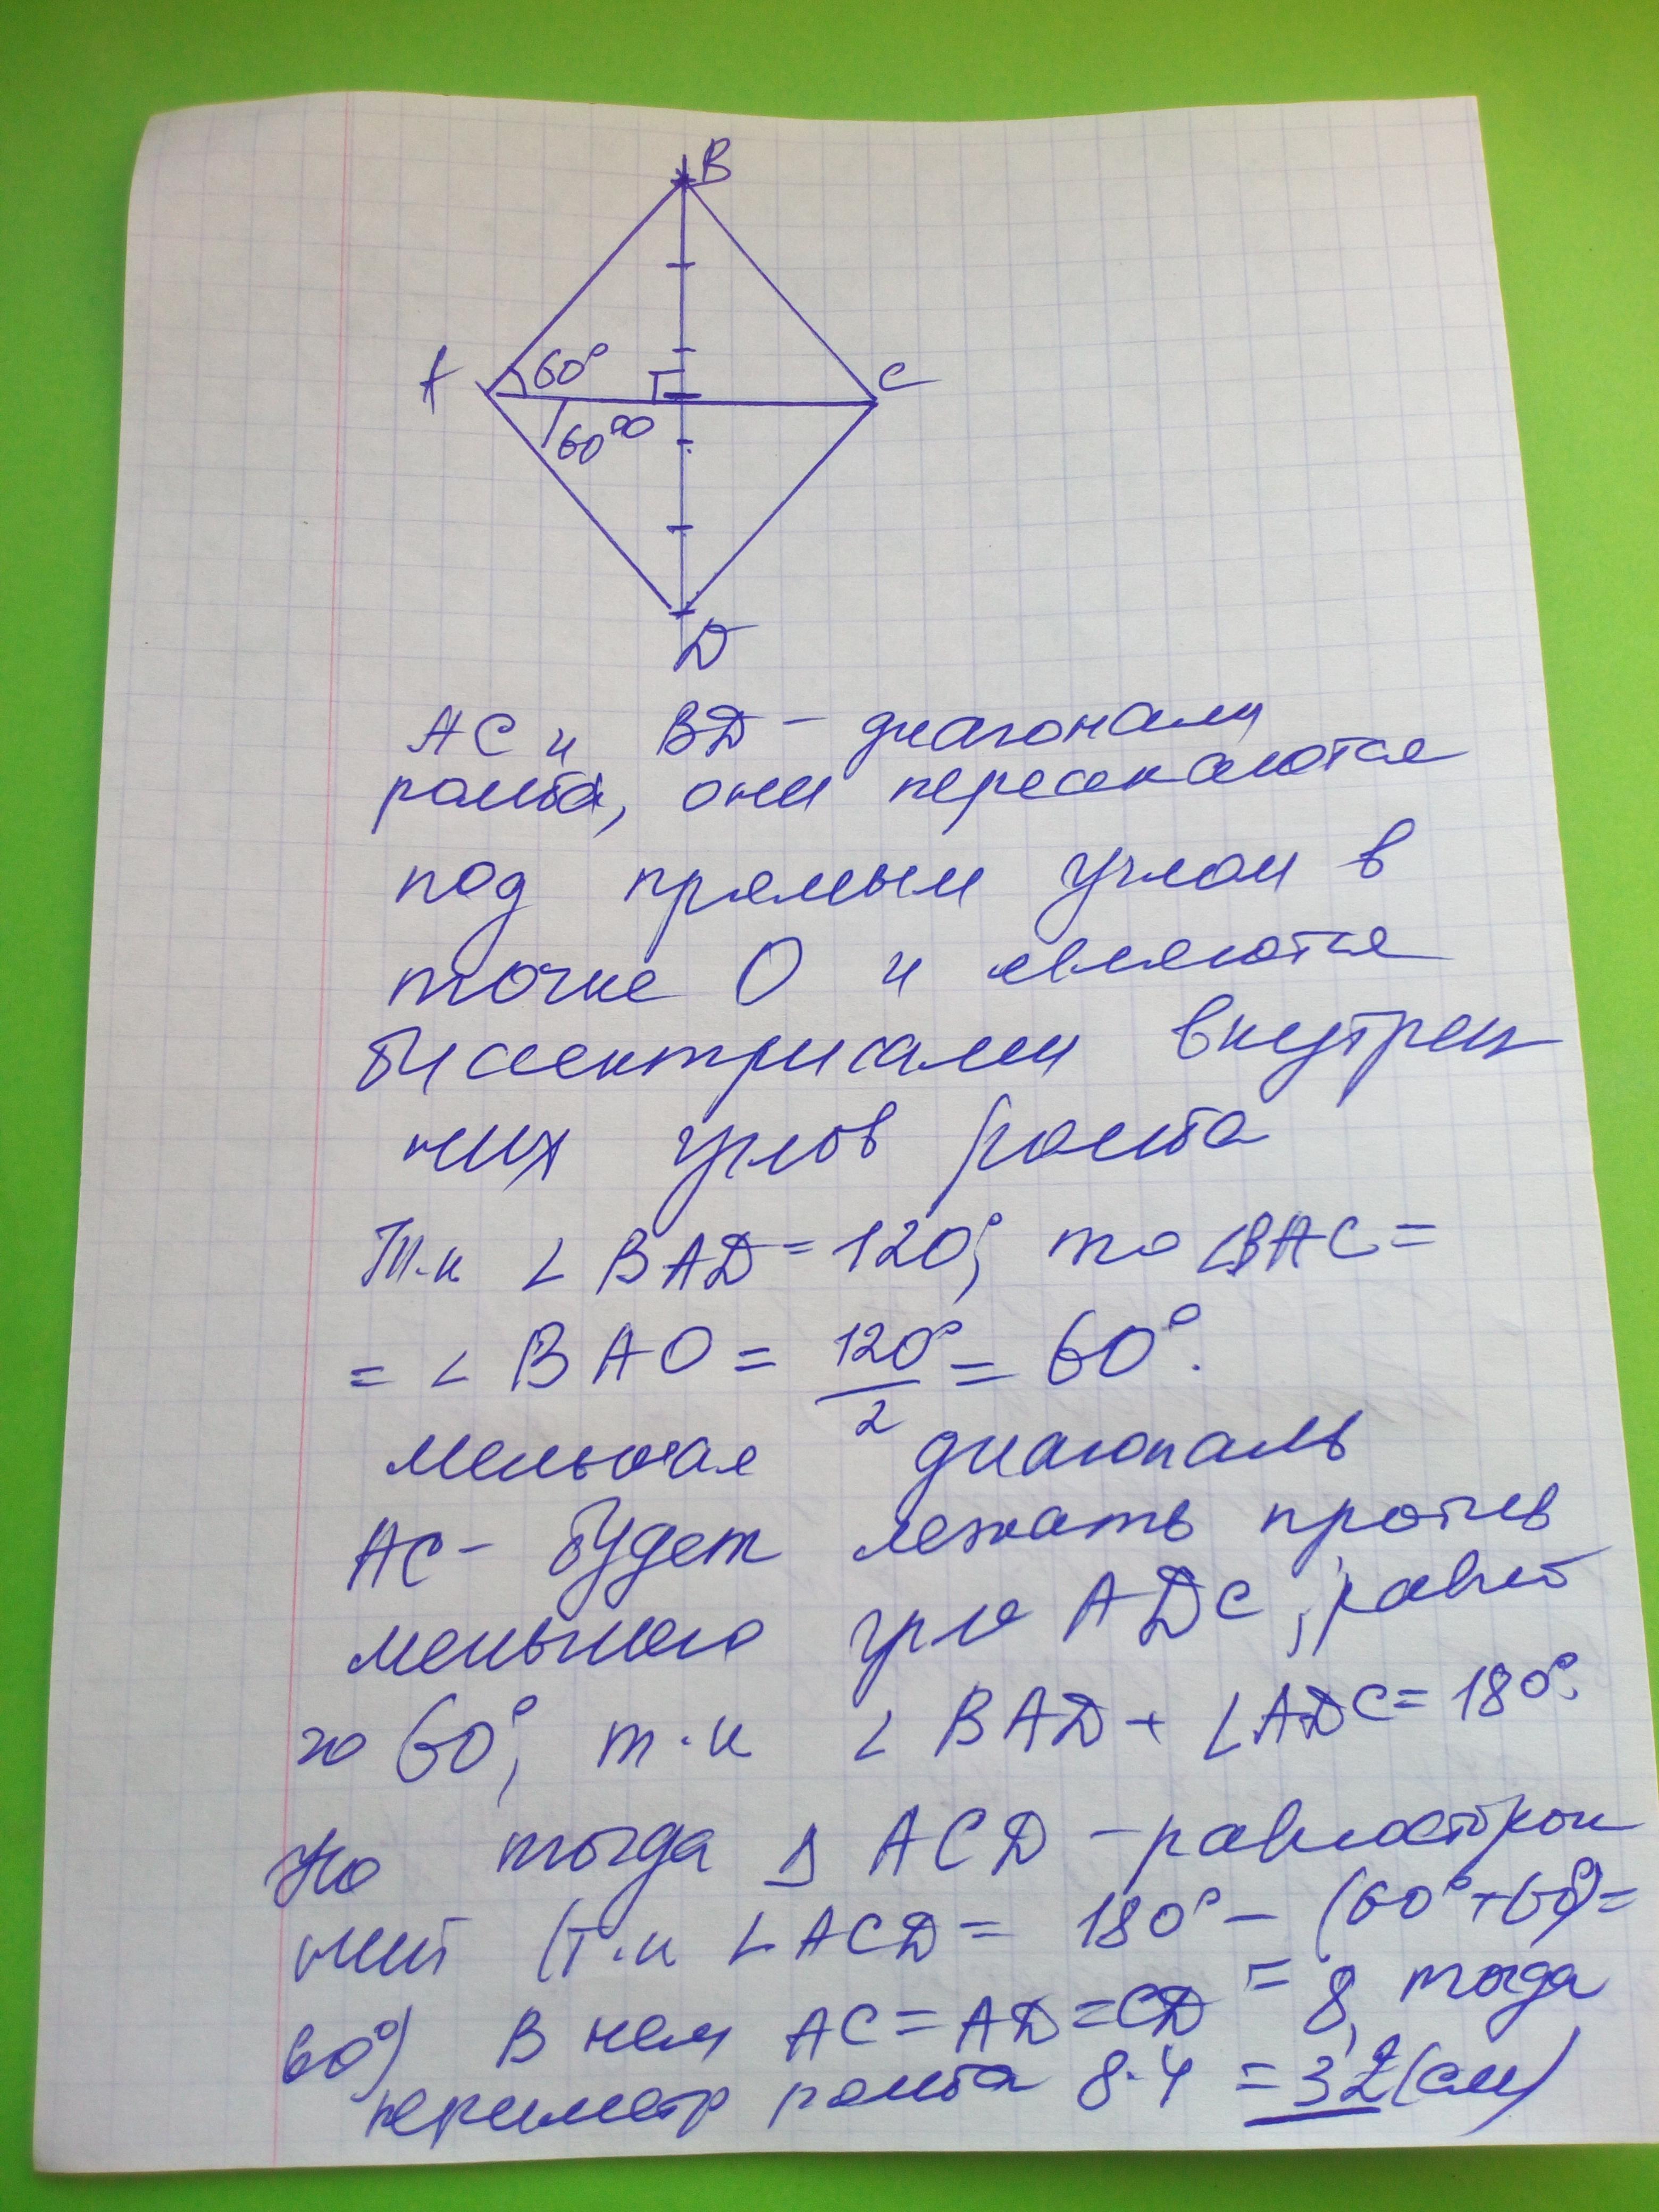 B
A
60°
C
60°
D
AC и BD - диагонали
ромба, они пересекаются
под прямым углом в
точке O и являются
биссектрисами внутрен
них углов ромба
Т.к ∠ BAD = 120°, то ∠BAC =
= ∠ BAO = 120°/2 = 60°.
меньшая диагональ
AC - будет лежать против
меньшего угла ADC, равно
го 60°, т.к ∠ BAD + ∠ADC = 180°.
Но тогда Δ ACD - равносторон
ний (т.к ∠ACD = 180° - (60° + 60°) =
60°) В нем AC = AD = CD = 8, тогда
периметр ромба 8·4 = 32 (см)